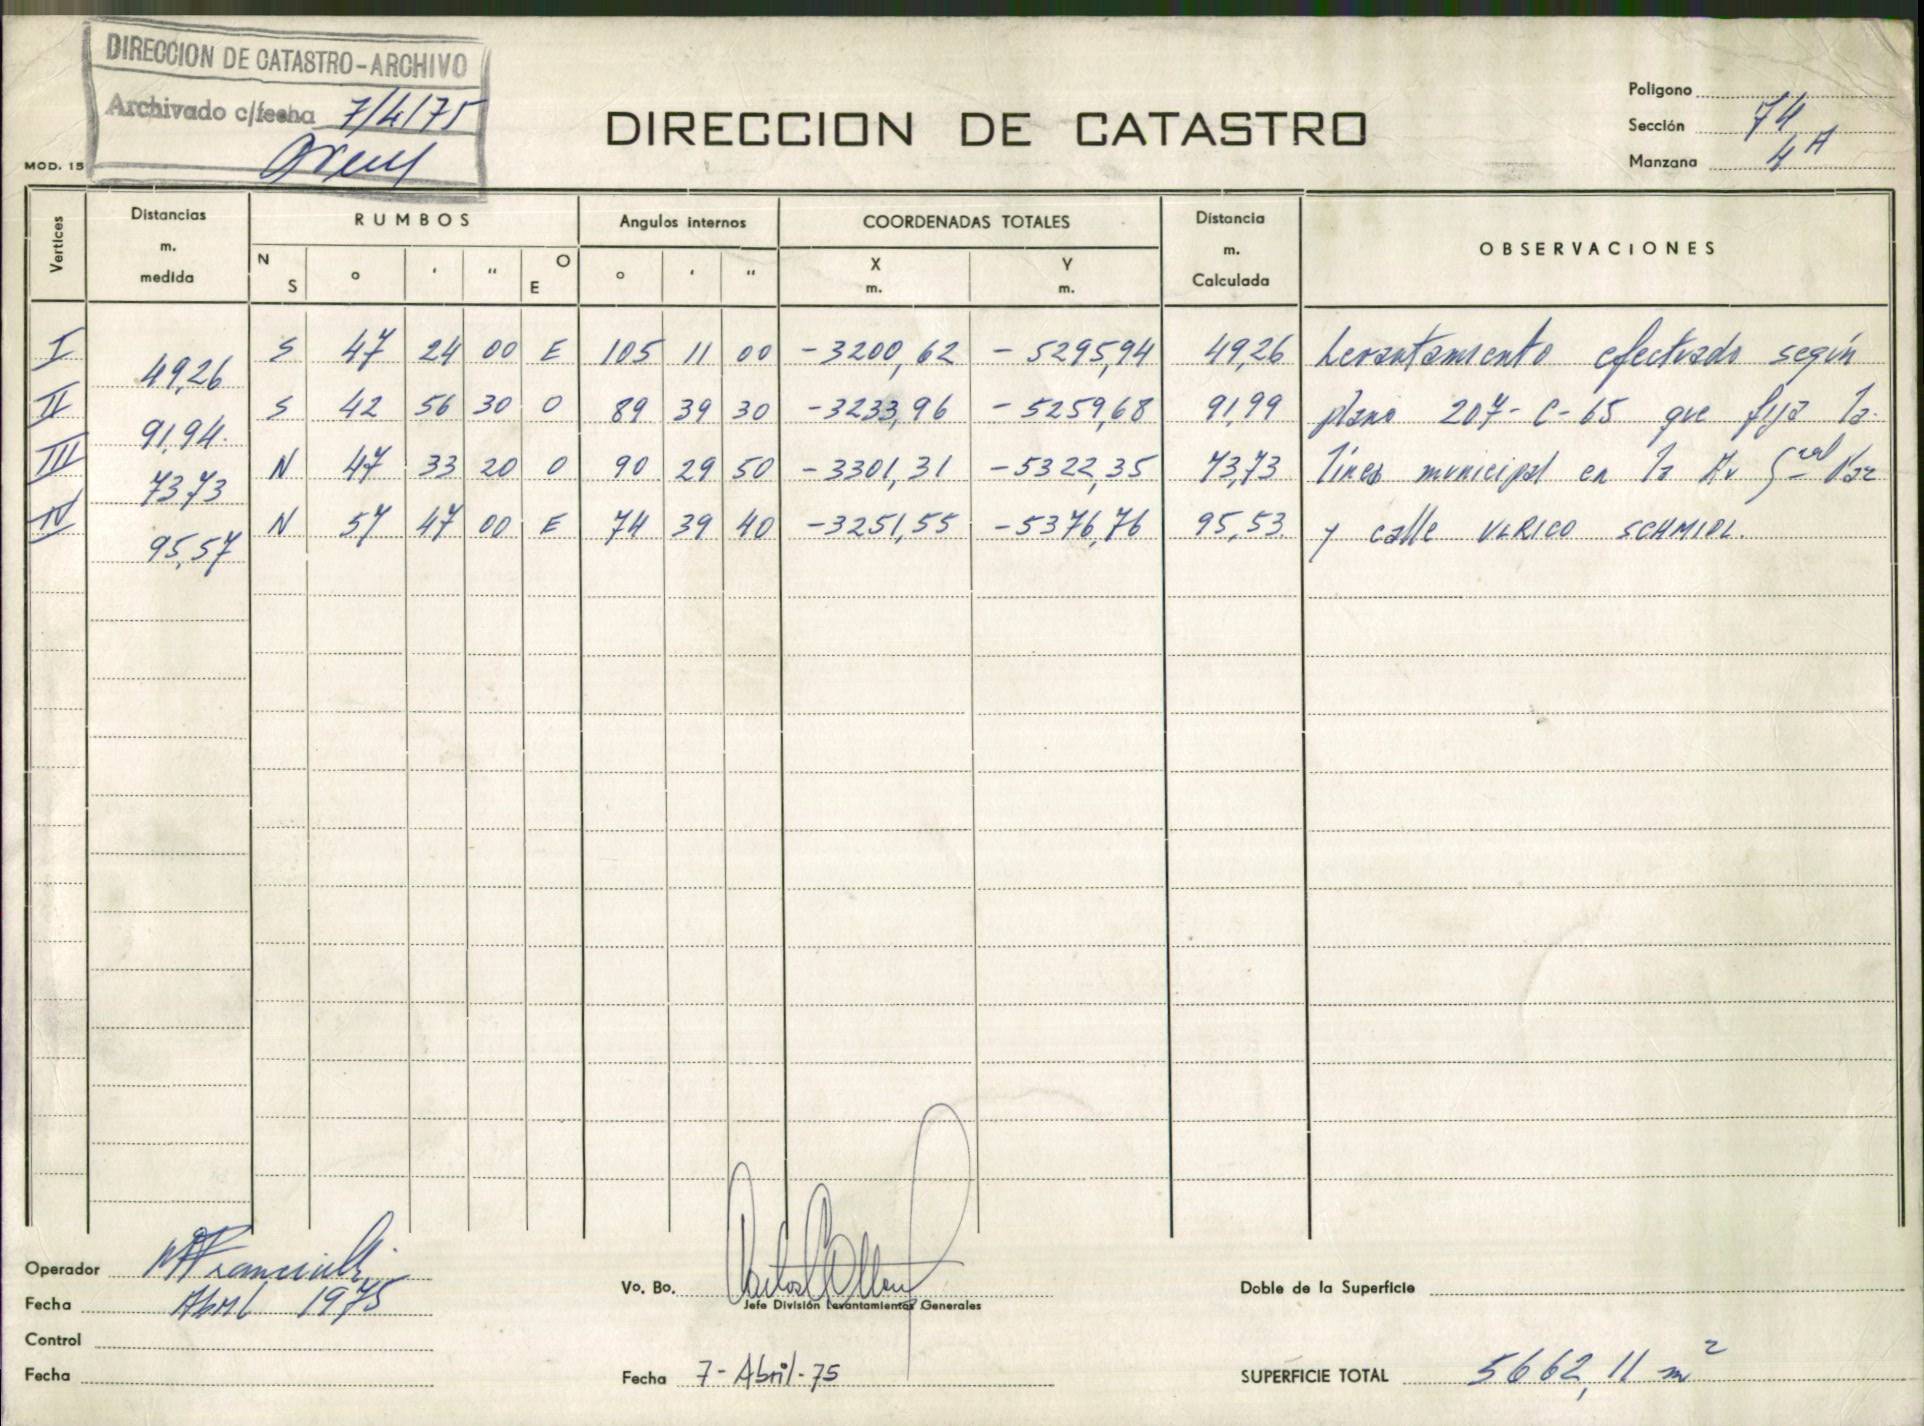 DIRECCION DE CATASTRO-ARCHIVO
Archivado c/fecha 7/4/75
MOD. 15
DIRECCION DE CATASTRO
Polígono
Sección 74
Manzana 4A
Vertices Distancias m. medida RUMBOS N S ° ' " O E Angulos internos ° ' " COORDENADAS TOTALES X m. Y m. Distancia m. Calculada OBSERVACIONES
I S 47 24 00 E 105 11 00 -3200,62 -5295,94 49,26 Levantamiento efectuado según
49,26
II S 42 56 30 O 89 39 30 -3233,96 -5259,68 91,99 plano 207-C-65 que fija la
91,94
III N 47 33 20 O 90 29 50 -3301,31 -5322,35 73,73 línea municipal en la Av Gral Paz
73,73
IV N 57 47 00 E 74 39 40 -3251,55 -5376,76 95,53 y calle ULRICO SCHMIDL.
95,57
Operador
Fecha Abril 1975
Control
Fecha
Vo. Bo.
Jefe División Levantamientos Generales
Fecha 7-Abril-75
Doble de la Superficie
SUPERFICIE TOTAL 5662,11 m²